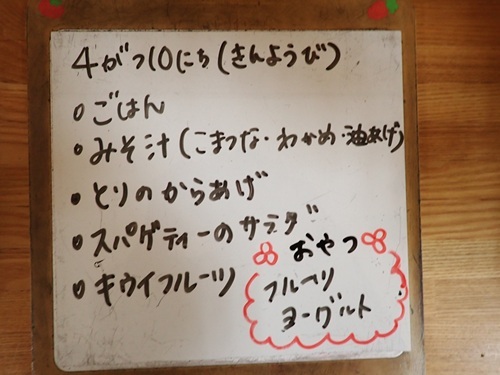 4がつ10にち(きんようび)
ごはん
みそ汁(こまつな・わかめ・油あげ)
とりのからあげ
スパゲティーのサラダ
キウイフルーツ
おやつ
フルーツ
ヨーグルト